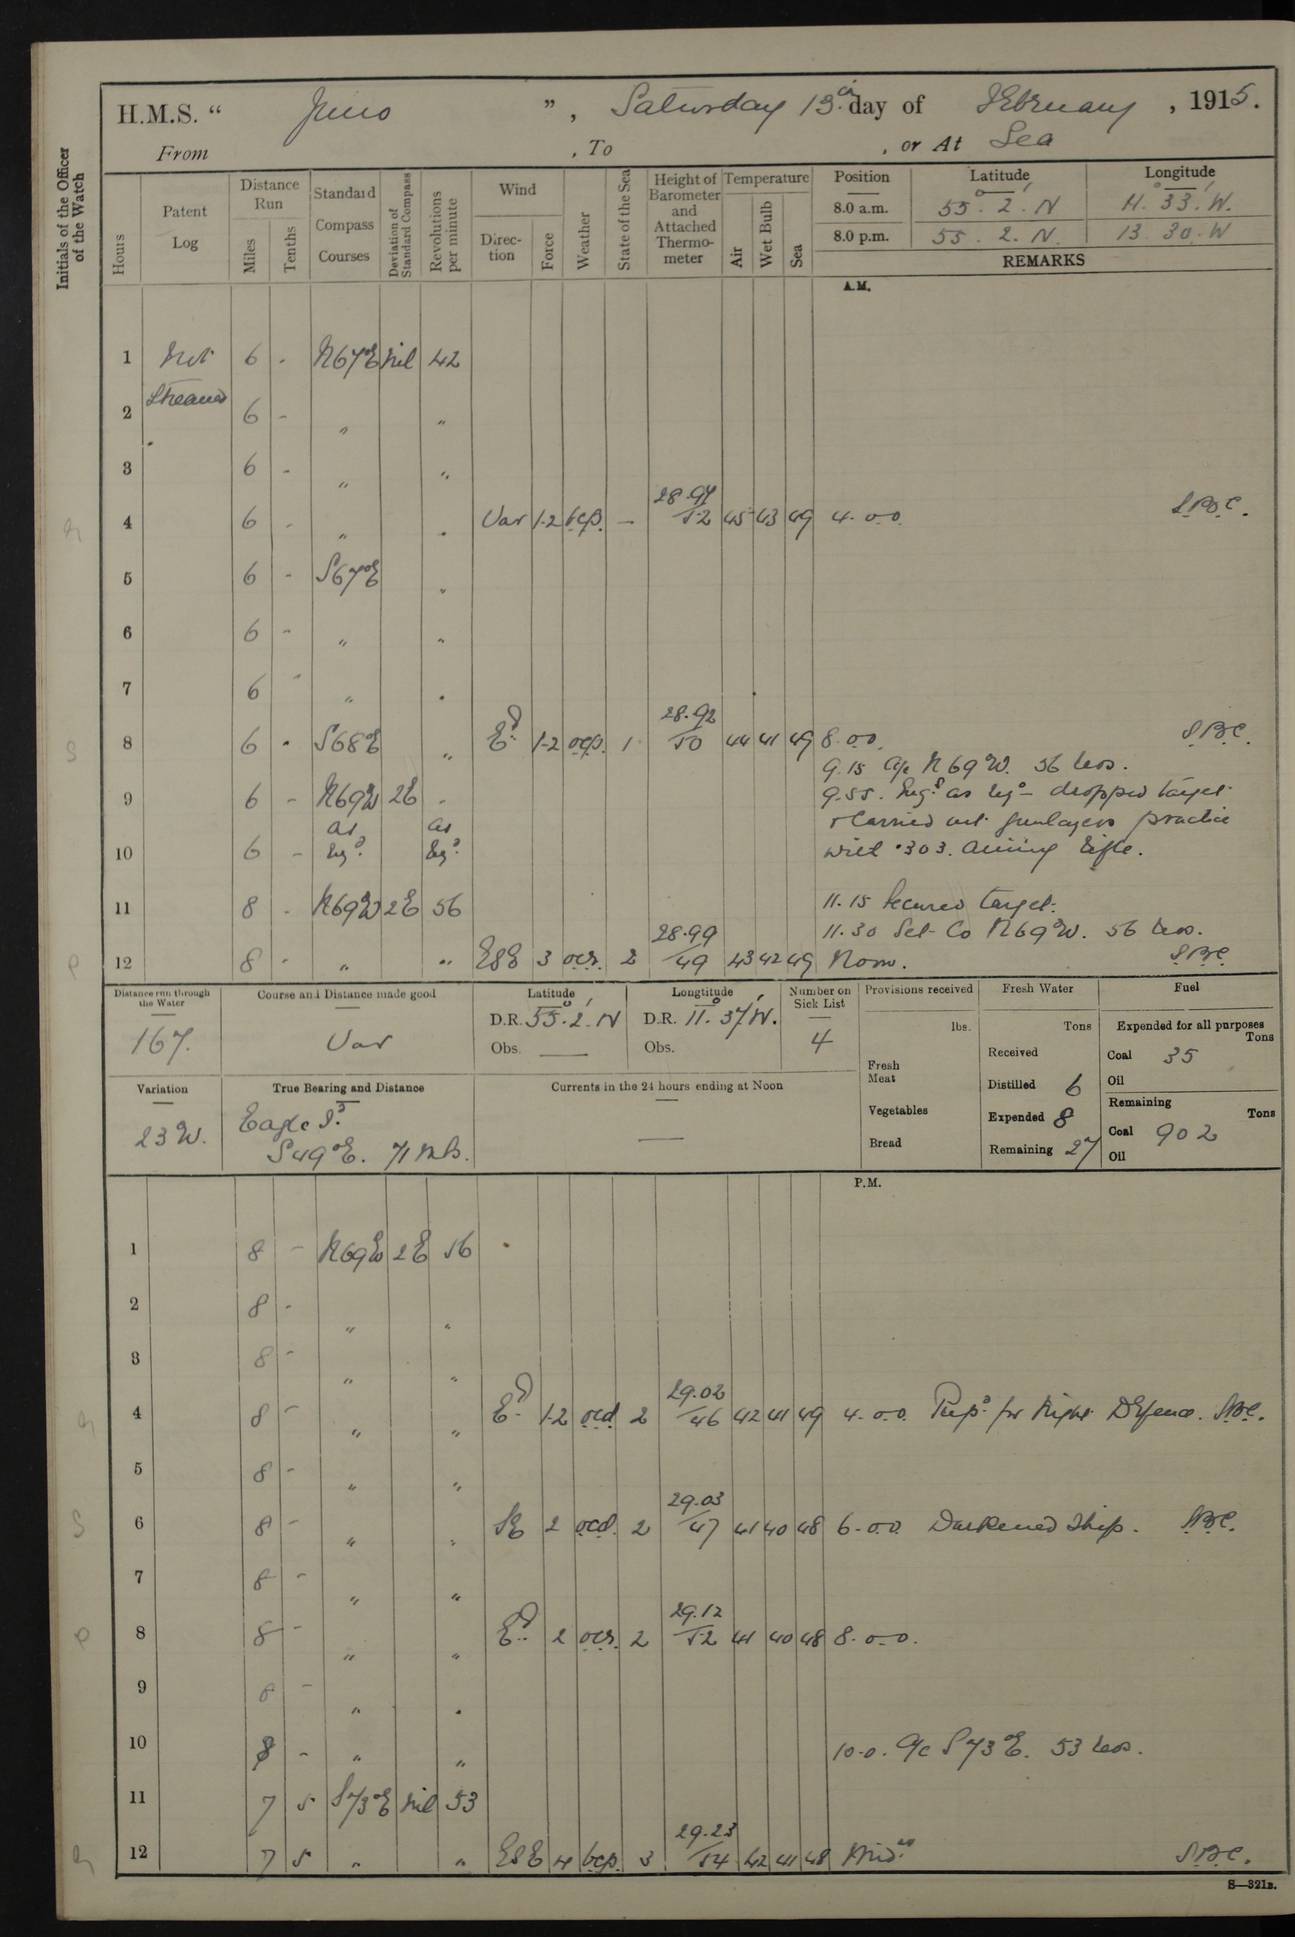 H.M.S. “ Juno ”, Saturday 13th day of February, 1915.
From , To , or At Sea
Initials of the Officer of the Watch
Hours
Patent Log
Distance Run
Miles
Tenths
Standard Compass Courses
Deviation of Standard Compass
Revolutions per minute
Wind
Direction
Force
Weather
State of the Sea
Height of Barometer and Attached Thermometer
Temperature
Air
Wet Bulb
Sea
Position Latitude Longitude
8.0 a.m. 55°. 2'. N 11. 33. W.
8.0 p.m. 55. 2. N. 13 30. W
REMARKS
A.M.
1 Not 6 - N67°E nil 42
2 Streamed 6 - " "
3 6 - " "
4 6 - " " Var 1-2 bcp. - 28.94/52 45 43 49 4.0.0. S.B.C.
5 6 - S67°E "
6 6 - " "
7 6 - " "
8 6 - S68°E " Ed. 1-2 ocp. 1 28.92/50 44 41 49 8.0.0. S.B.C.
9.15 A/c N69°W. 56 revs.
9 6 - N69°W 2E " 9.55. Eng.s as req.d - dropped target
& Carried out gunlayers practice
10 6 - as req.d as req.d with .303. aiming rifle.
11 8 - N69°W 2E 56 11.15 Secured target.
11.30 Set Co N69°W. 56 revs.
12 8 - " " ESE 3 ocr. 2 28.99/49 43 42 49 Noon. S.B.C.
Distance run through the Water
167.
Course and Distance made good
Var
Latitude
D.R. 55°. 2'. N
Obs. —
Longtitude
D.R. 11°. 37' W.
Obs.
Number on Sick List
4
Provisions received
lbs.
Fresh Meat
Vegetables
Bread
Fresh Water
Tons
Received
Distilled 6
Expended 8
Remaining 27
Fuel
Expended for all purposes
Tons
Coal 35
Oil
Remaining
Tons
Coal 902
Oil
Variation
23 W.
True Bearing and Distance
Eagle I.
S49°E. 71 mls.
Currents in the 24 hours ending at Noon
—
P.M.
1 8 - N69°W 2E 56
2 8 - " "
3 8 - " "
4 8 - " " Ed. 1-2 ocd 2 29.02/46 42 41 49 4.0.0. Prep.d for Night Defence. S.B.C.
5 8 - " "
6 8 - " " SE 2 ocd. 2 29.03/47 41 40 48 6.0.0. Darkened Ship. S.B.C.
7 8 - " "
8 8 - " " Ed. 2 ocr. 2 29.12/52 41 40 48 8.0.0.
9 8 - " "
10 8 - " " 10.0. A/c S73°E. 53 revs.
11 7 5 S73°E nil 53
12 7 5 " " ESE 4 bcp. 3 29.23/54 42 41 48 Mid. S.B.C.
S—321B.